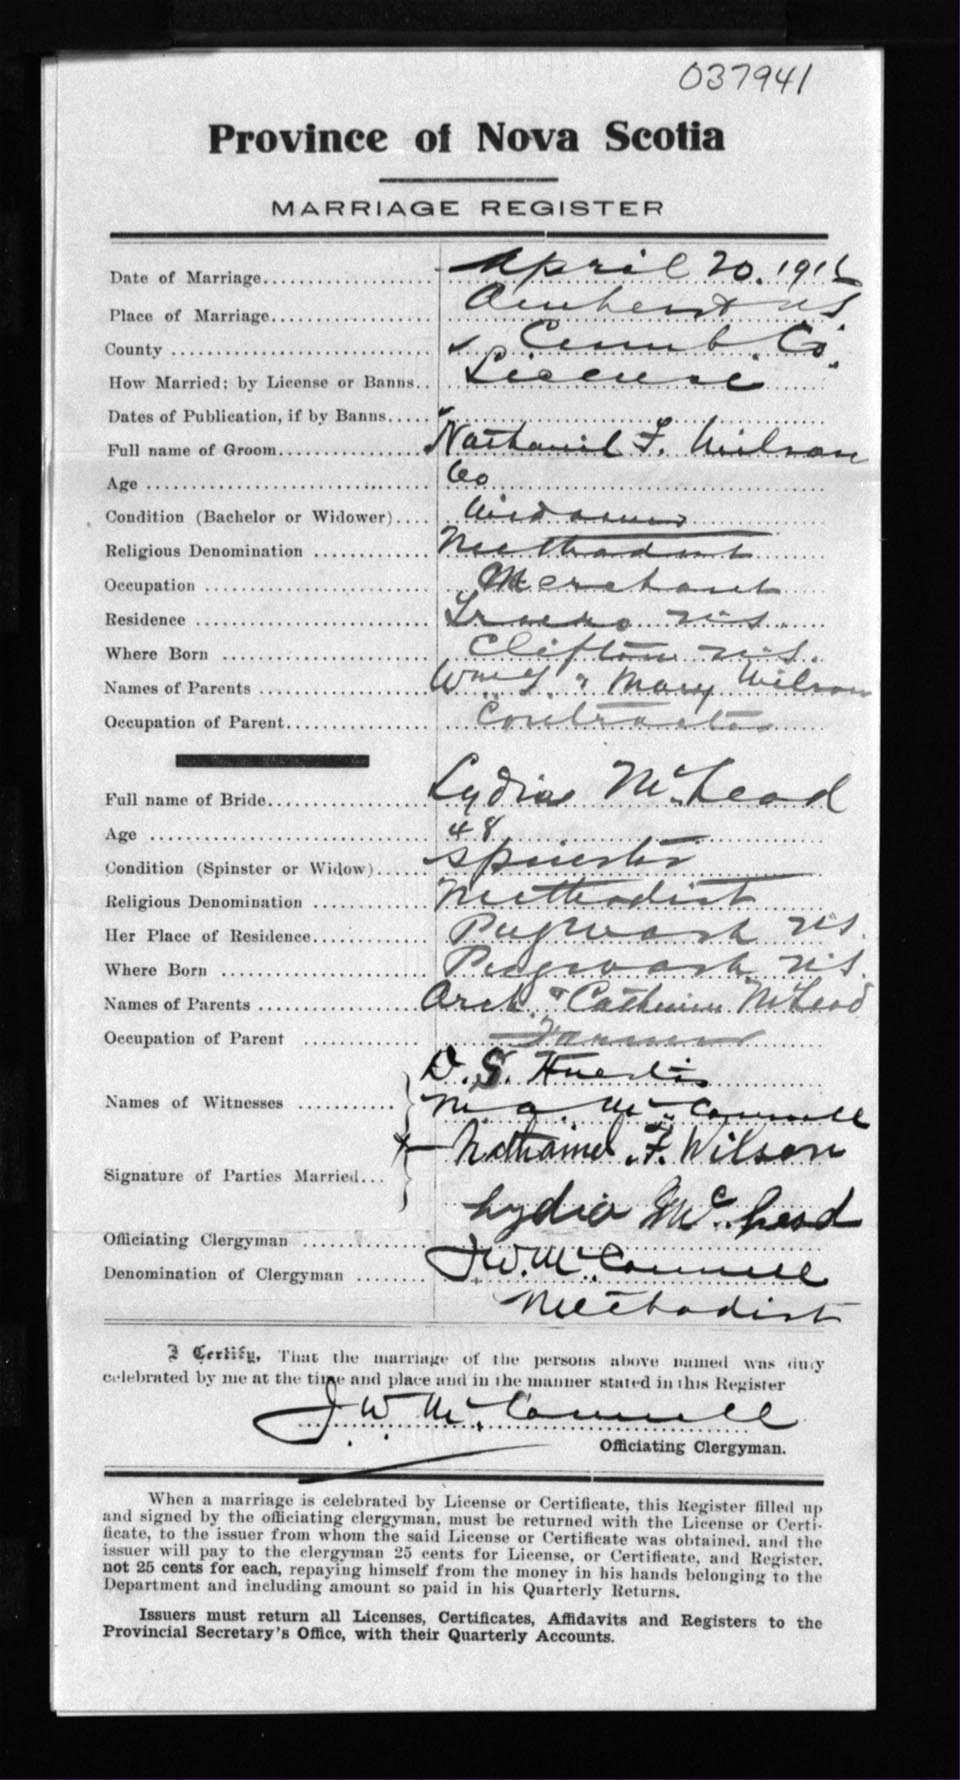 037941
Province of Nova Scotia
MARRIAGE REGISTER
Date of Marriage April 20. 1916
Place of Marriage Amherst NS
County Cumb. Co.
How Married; by License or Banns License
Dates of Publication, if by Banns
Full name of Groom Nathaniel F. Wilson
Age 60
Condition (Bachelor or Widower) Widower
Religious Denomination Methodist
Occupation Merchant
Residence Truro N.S.
Where Born Clifton N.S.
Names of Parents Wm Y. & Mary Wilson
Occupation of Parent Contractor
Full name of Bride Lydia McLeod
Age 48
Condition (Spinster or Widow) Spinster
Religious Denomination Methodist
Her Place of Residence Pugwash NS.
Where Born Pugwash N.S.
Names of Parents Arch. & Catherine McLeod
Occupation of Parent Farmer
D. S. Huestis
Names of Witnesses M. A. McConnell
Nathaniel F. Wilson
Signature of Parties Married
Lydia McLeod
Officiating Clergyman J W. McConnell
Denomination of Clergyman Methodist
I Certify, That the marriage of the persons above named was duly
celebrated by me at the time and place and in the manner stated in this Register
J. W. McConnell
Officiating Clergyman.
When a marriage is celebrated by License or Certificate, this Register filled up
and signed by the officiating clergyman, must be returned with the License or Certi-
ficate, to the issuer from whom the said License or Certificate was obtained, and the
issuer will pay to the clergyman 25 cents for License, or Certificate, and Register,
not 25 cents for each, repaying himself from the money in his hands belonging to the
Department and including amount so paid in his Quarterly Returns.
Issuers must return all Licenses, Certificates, Affidavits and Registers to the
Provincial Secretary's Office, with their Quarterly Accounts.